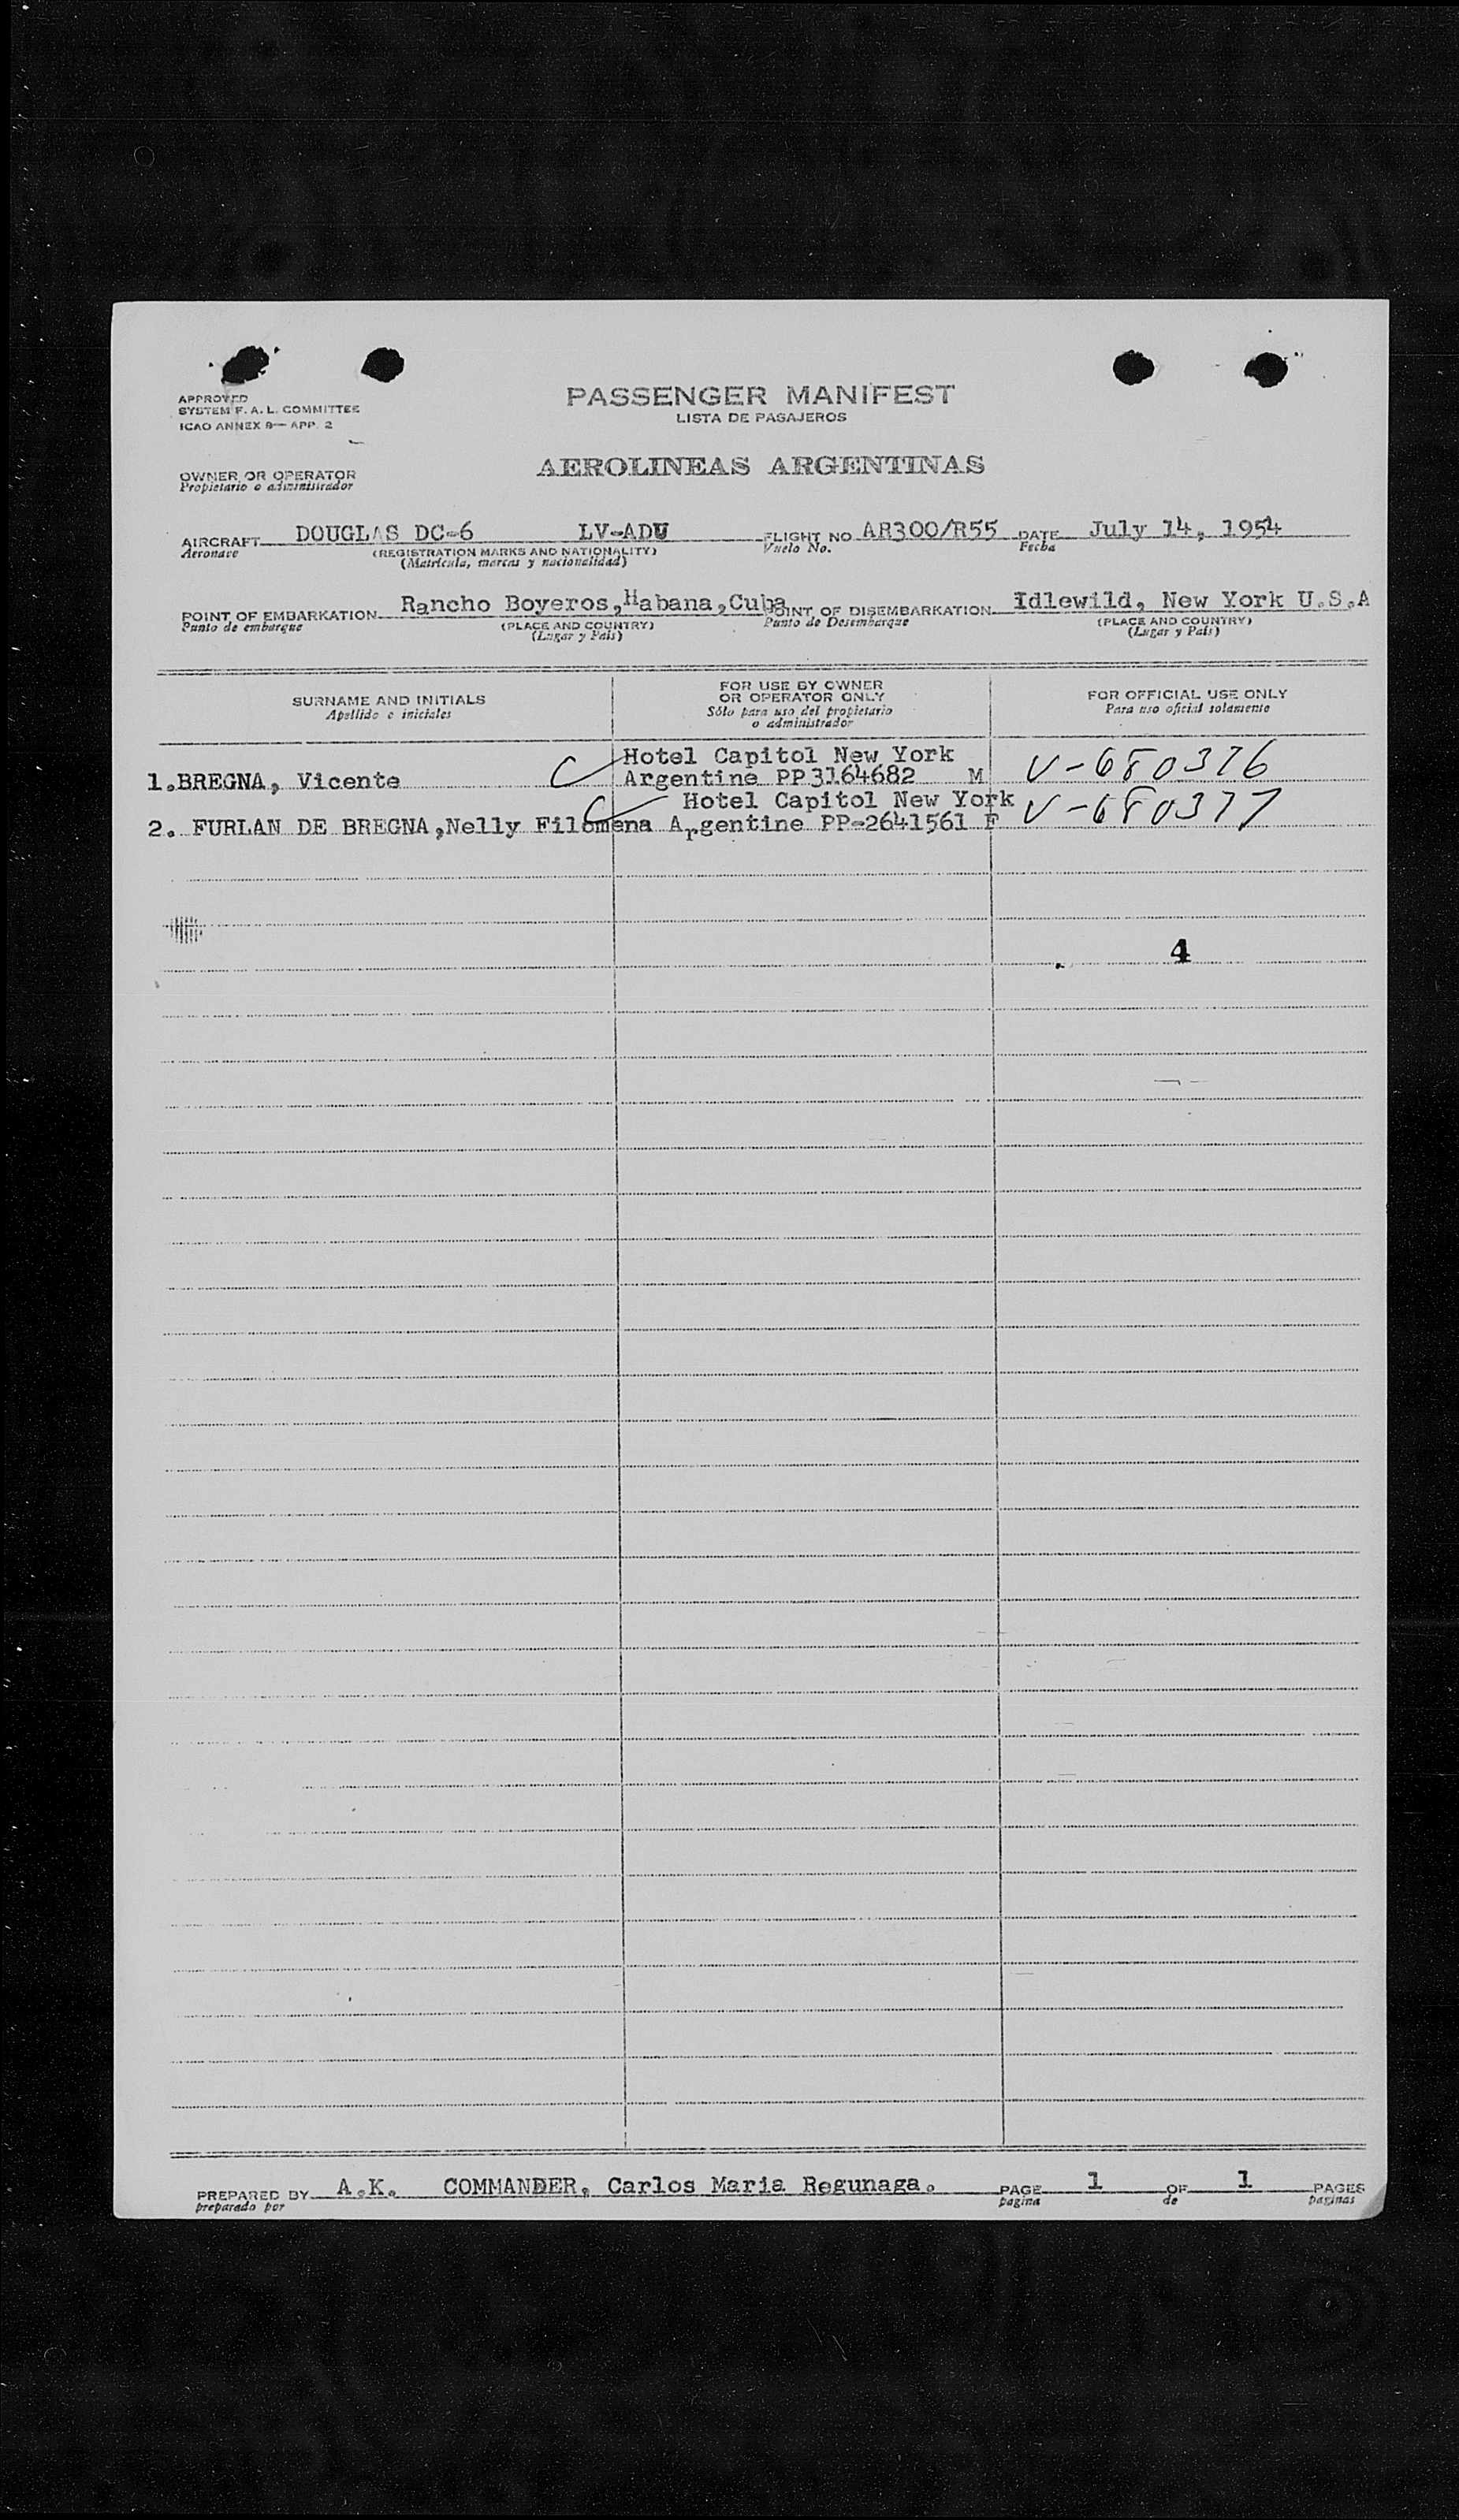 APPROVED
SYSTEM F. A. L. COMMITTEE
ICAO ANNEX 9— APP. 2
PASSENGER MANIFEST
LISTA DE PASAJEROS
OWNER OR OPERATOR
Propietario o administrador
AEROLINEAS ARGENTINAS
AIRCRAFT DOUGLAS DC-6 LV-ADU FLIGHT NO AR300/R55 DATE July 14, 1954
Aeronave (REGISTRATION MARKS AND NATIONALITY) Vuelo No. Fecha
(Matrícula, marcas y nacionalidad)
POINT OF EMBARKATION Rancho Boyeros,Habana,Cuba POINT OF DISEMBARKATION Idlewild, New York U.S.A
Punto de embarque (PLACE AND COUNTRY) Punto de Desembarque (PLACE AND COUNTRY)
(Lugar y País) (Lugar y País)
SURNAME AND INITIALS
Apellido e iniciales
FOR USE BY OWNER
OR OPERATOR ONLY
Sólo para uso del propietario
o administrador
FOR OFFICIAL USE ONLY
Para uso oficial solamente
Hotel Capitol New York
1.BREGNA, Vicente C Argentine PP3164682 M V-680376
C Hotel Capitol New York
2. FURLAN DE BREGNA,Nelly Filomena Argentine PP-2641561 F V-680377
4
PREPARED BY A.K. COMMANDER, Carlos Maria Regunaga. PAGE 1 OF 1 PAGES
preparado por pagina de paginas